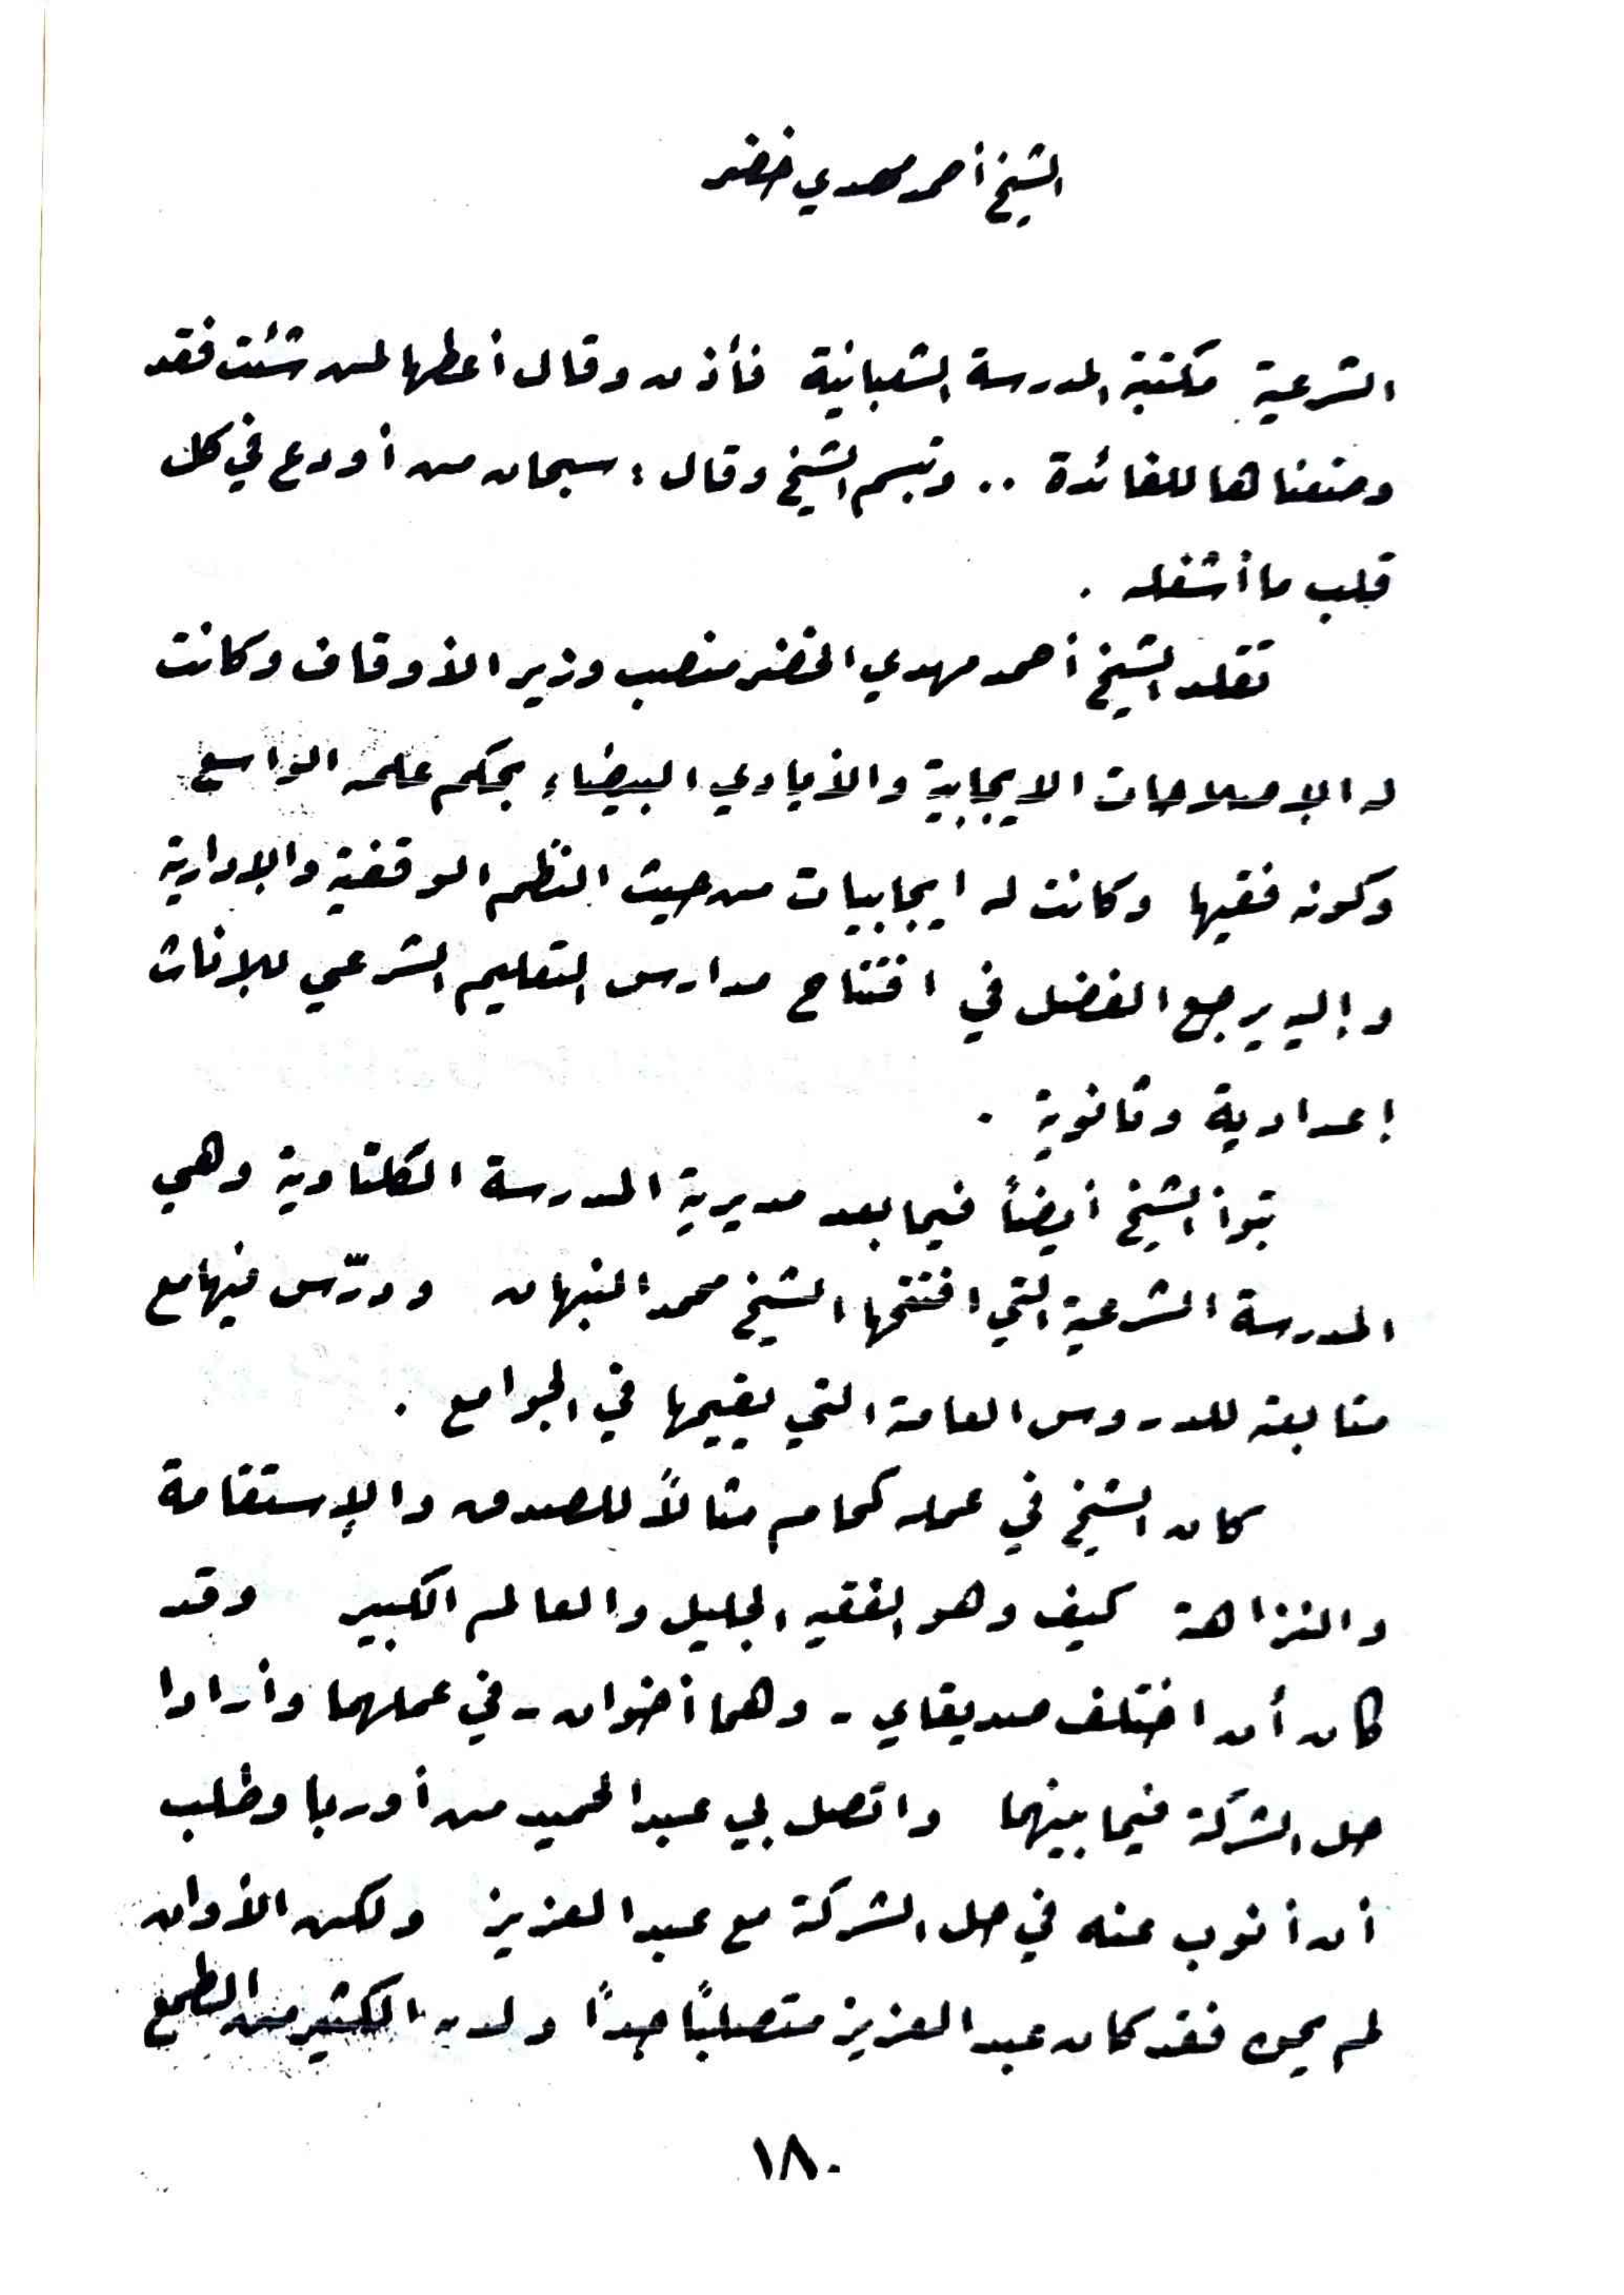 الشيخ أحمد مهدي خضر
الشرعية مكتبة المدرسة الشعبانية فأذن وقال أعطها لمن شئت فقد
وضعناها للفائدة .. وتبسم الشيخ وقال : سبحان من أودع في كل
قلب ما أشغله .
تقلد الشيخ أحمد مهدي الخضر منصب وزير الأوقاف وكانت
له الإصلاحات الايجابية والأيادي البيضاء بحكم علمه الواسع
وكونه فقيها وكانت له ايجابيات من حيث النظم الوقفية والإدارية
وإليه يرجع الفضل في افتتاح مدارس التعليم الشرعي للإناث
إعدادية وثانوية .
تبوأ الشيخ أيضاً فيما بعد مديرية المدرسة الكلتاوية وهي
المدرسة الشرعية التي افتتحها الشيخ محمد النبهان ودرّس فيها مع
متابعته للدروس العامة التي يقيمها في الجوامع .
كان الشيخ في عمله كمحام مثالاً للصدق والإستقامة
والنزاهة كيف وهو الفقيه الجليل والعالم الكبير وقد
كان أن اختلف صديقاي - وهما أخوان - في عملهما وأرادا
حل الشركة فيما بينهما واتصل بي عبد الحميد من أوربا وطلب
أن أنوب عنه في حل الشركة مع عبد العزيز ولكن الأوان
لم يحن فقد كان عبد العزيز متصلباً جداً ولديه الكثير من الطمع
١٨٠